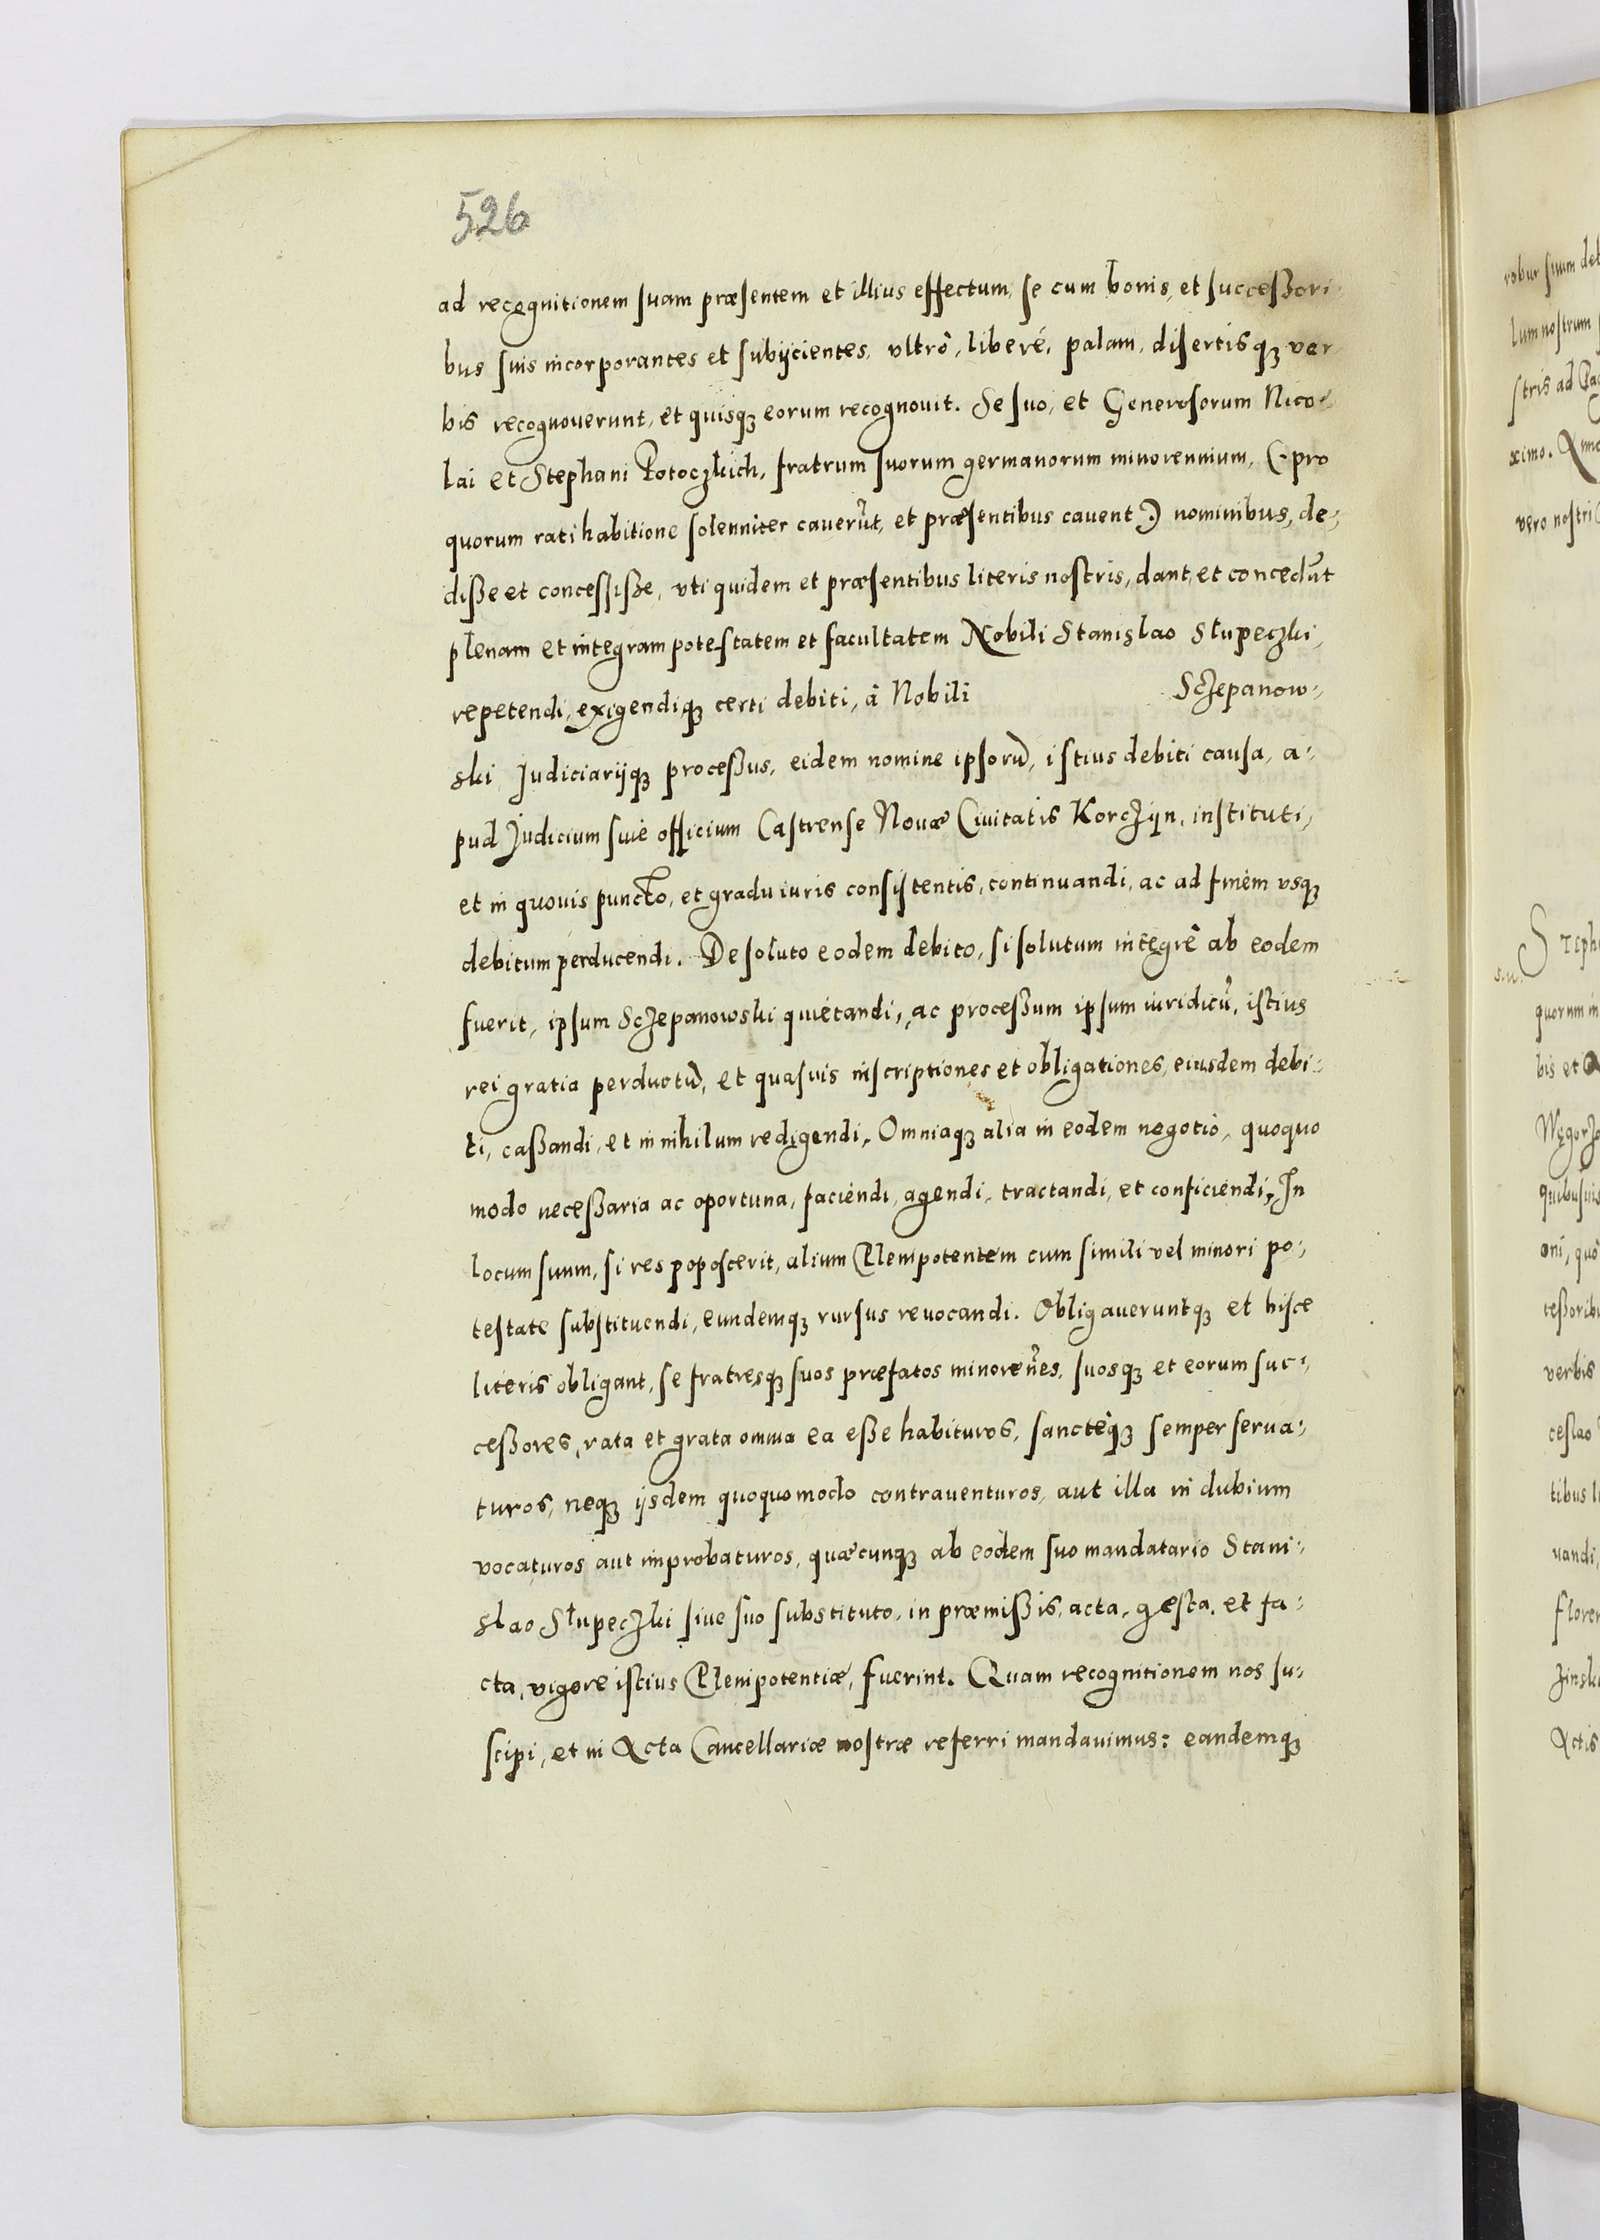 526
ad recognitionem suam præsentem et illius effectum, se cum bonis, et successori
bus suis incorporantes et subijcientes, vltrò, liberé, palam, disertisq₃ ver
bis recognoverunt, et quisq₃ eorum recognovit. Se suo, et Generosorum Nico-
lai et Stephani Potoczkich, fratrum suorum germanorum minorennium, (: pro
quorum ratihabitione solenniter caverũt, et præsentibus cavent :) nominibus, de-
disse et concessisse, vti quidem et præsentibus literis nostris, dant, et concedũt
plenam et integram potestatem et facultatem Nobili Stanislao Słupeczki,
repetendi, exigendiq₃ certi debiti, à Nobili Sczepanow-
ski, Judiciarijq₃ processus, eidem nomine ipsorũ, istius debiti causa, a-
pud Judicium sive officium Castrense Novæ Civitatis Korczijn, instituti,
et in quovis puncto, et gradu iuris consistentis, continuandi, ac ad finem vsq₃
debitum perducendi. De soluto eodem debito, si solutum integrè ab eodem
fuerit, ipsum Sczepanowski quietandi, ac processum ipsum iuridicũ, istius
rei gratia perductũ, et quasvis inscriptiones et obligationes, eiusdem debi-
ti, cassandi, et in nihilum redigendi, Omniaq₃ alia in eodem negotio, quoquo
modo necessaria ac oportuna, faciendi, agendi, tractandi, et conficiendi, In
locum suum, si res poposcerit, alium Plenipotentem cum simili vel minori po-
testate substituendi, eundemq₃ rursus revocandi. Obligaveruntq₃ et hisce
literis obligant, se fratresq₃ suos præfatos minoreñes, suosq₃ et eorum suc-
cessores, rata et grata omnia ea esse habituros, sanctèq₃ semper serva-
turos, neq₃ ijsdem quoquomodo contraventuros, aut illa in dubium
vocaturos aut improbaturos, quæcunq₃ ab eodem suo mandatario Stani-
slao Słupeczki sive suo substituto, in præmissis, acta, gesta, et fa-
cta, vigore istius Plenipotentiæ, fuerint. Quam recognitionem nos su-
scipi, et in Acta Cancellariæ nostræ referri mandavimus: eandemq₃